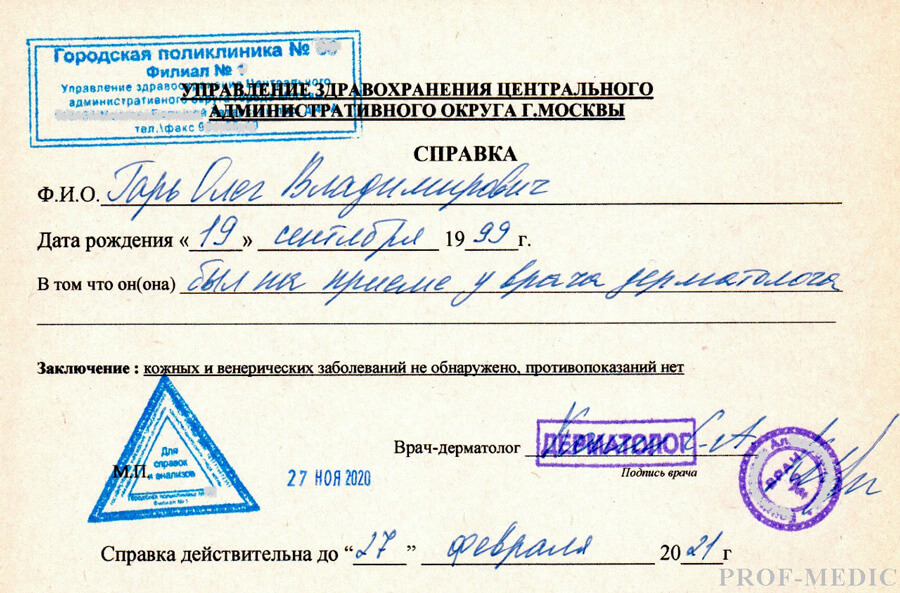 Городская поликлиника №
Филиал №
Управление здравоохранения Центрального
административного округа города Москвы
тел.\факс 9
УПРАВЛЕНИЕ ЗДРАВОХРАНЕНИЯ ЦЕНТРАЛЬНОГО
АДМИНИСТРАТИВНОГО ОКРУГА Г.МОСКВЫ
СПРАВКА
Ф.И.О. Гарь Олег Владимирович
Дата рождения «19» сентября 1999 г.
В том что он(она) был на приеме у врача дерматолога
Заключение : кожных и венерических заболеваний не обнаружено, противопоказаний нет
Для
справок
и анализов
Городская поликлиника №
Филиал №1
М.П.
27 НОЯ 2020
Врач-дерматолог
ДЕРМАТОЛОГ
Подпись врача
ВРАЧ
Справка действительна до “27” февраля 2021г
PROF-MEDIC